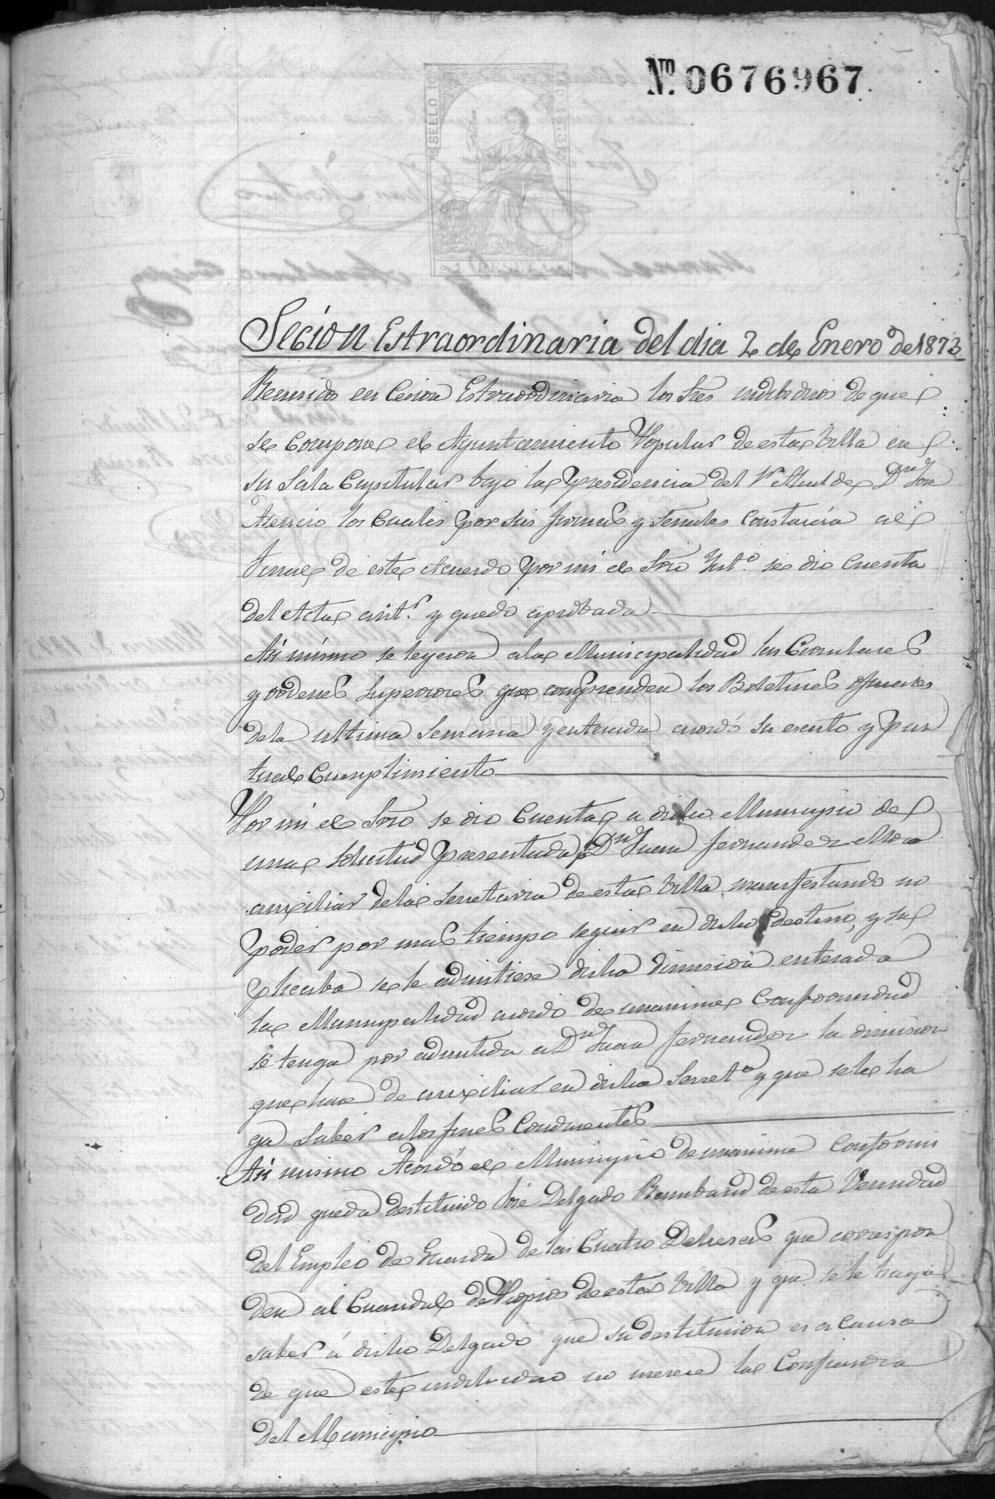 Nº. 0676967.
SELLO 10
Secion Estraordinaria del dia 2 de Enero de 1873
Reunido en Cesion Estraordinaria los Sres individuos de que
se Compone el Ayuntamiento Popular de esta Villa en
su Sala Capitular bajo la Presidencia del Sr Alcalde Dn José
Asencio los Cuales por sus firmas y señales Constaria al
final de este Acuerdo por mi el Srio Intº. se dio Cuenta
del Acta antr. y quedo aprobada
Asi mismo se leyeron a la Municipalidad las Circulares
y ordenes Superiores que comprenden los Boletines oficiales
de la ultima Semana y enterada acordó su esacto y pun
tual Cumplimiento
Por mi el Srio se dio Cuenta a dicho Municipio de
una Solicitud presentada pr Dn Juan Fernandez Mora
auxiliar de la Secretaria de esta Villa manifestando no
poder por mas tiempo seguir en dicho destino, y su
plicaba se le admitiese dicha dimision enterada
la Municipalidad acordo de unanime Conformidad
se tenga por admitida a Dn Juan Fernandez la dimision
que hace de auxiliar en dicha Secretª y que se le ha
ga saber a los fines Conducentes
Asi mismo Acordó el Municipio de unanime Conformi
dad queda destituido José Delgado Rambaud de esta Vecindad
del Empleo de Guarda de las Cuatro Dehesas que correspon
den al Caudal de Propios de esta Villa y que se le haga
saber á dicho Delgado que su destitucion es a Causa
de que este individuo no merece la Confianza
del Municipio